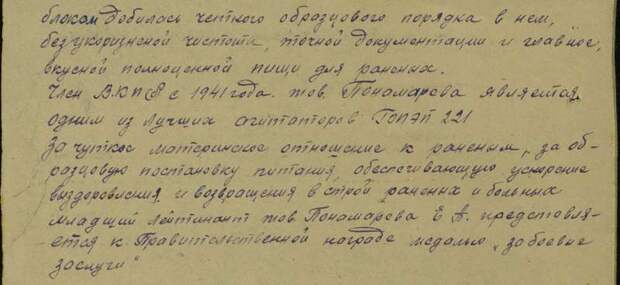 блоком добилась четкого образцового порядка в нем,
безукоризненой чистоты, точной документации и главное,
вкусной полноценной пищи для раненых.
Член ВКП(б) с 1941 года. тов. Пономарова является
одним из лучших агитаторов ГОПЭП 221
За чуткое материнское отношение к раненым, за об-
разцовую постановку питания, обеспечивающую ускорение
выздоровления и возвращения в строй раненых и больных
младший лейтинант тов. Пономарова Е. А. представля-
ется к Правительственной награде медалью „за боевые
заслуги"